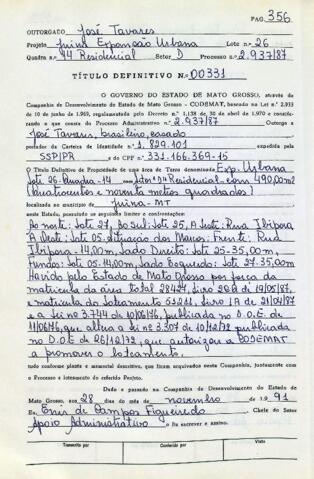 PAG. 356
OUTORGADO José Tavares
Projeto Juina Expansão Urbana Lote n.º 26
Quadra n.º 14 Residencial Setor D Processo n.º 2.937/87
TÍTULO DEFINITIVO N.º 00331
O GOVERNO DO ESTADO DE MATO GROSSO, através da
Companhia de Desenvolvimento do Estado de Mato Grosso - CODEMAT, baseado na Lei n.º 2.933
de 10 de junho de 1.969, regulamentada pelo Decreto n.º 1.138 de 30 de abril de 1.970 e considerando
o que consta do Processo Administrativo n.º 2.937/87 Outorga a
José Tavares, brasileiro, casado
portador da Carteira de Identidade n.º 1.829.101 expedida pela
SSP/PR e do CPF n.º 331.166.369-15
o Título Definitivo de Propriedade de uma área de Terra denominada Exp. Urbana
Lote 26 - Quadra - 14 Setor "D" Residencial - com 490,00m2
(Quatrocentos e noventa metros quadrados)
localizada no município de Juina - MT
neste Estado, possuindo os seguintes limites e confrontações:
Ao norte: Lote 27, Ao Sul: Lote 25, A Leste: Rua Ibipora
A Oeste: Lote 05. Situação dos Marcos: Frente: Rua
Ibipora - 14,00m, Lado Direito: Lote 25-35,00m,
Fundos: Lote 05. 14,00m, Lado Esquerdo: Lote 27. 35,00m
Havido pelo Estado de Mato Grosso por força da
matricula da área total 28424, Livro 28 di 19/05/87,
e matricula do Loteamento 53261, Livro 1A de 21/04/87
e a Lei nº 3.744 de 10/06/76, publicada no D.O.E de
11/06/76, que altera a lei nº 3.307 de 10/12/72 publicada
no D.O.E de 26/12/72, que autorizou a CODEMAT
a promover o Loteamento.
tudo conforme planta e memorial descritivo, que ficam arquivados nesta Companhia, juntamente com
o Processo e loteamento do referido Projeto.
Dado e passado na Companhia de Desenvolvimento do Estado de
Mato Grosso, aos 28 dias do mês de novembro de 1.991
Eu, Enir de Campos Figueiredo Chefe do Setor
Apoio Administrativo o fiz escrever e assino.
Transcrito por Conferido por Visto